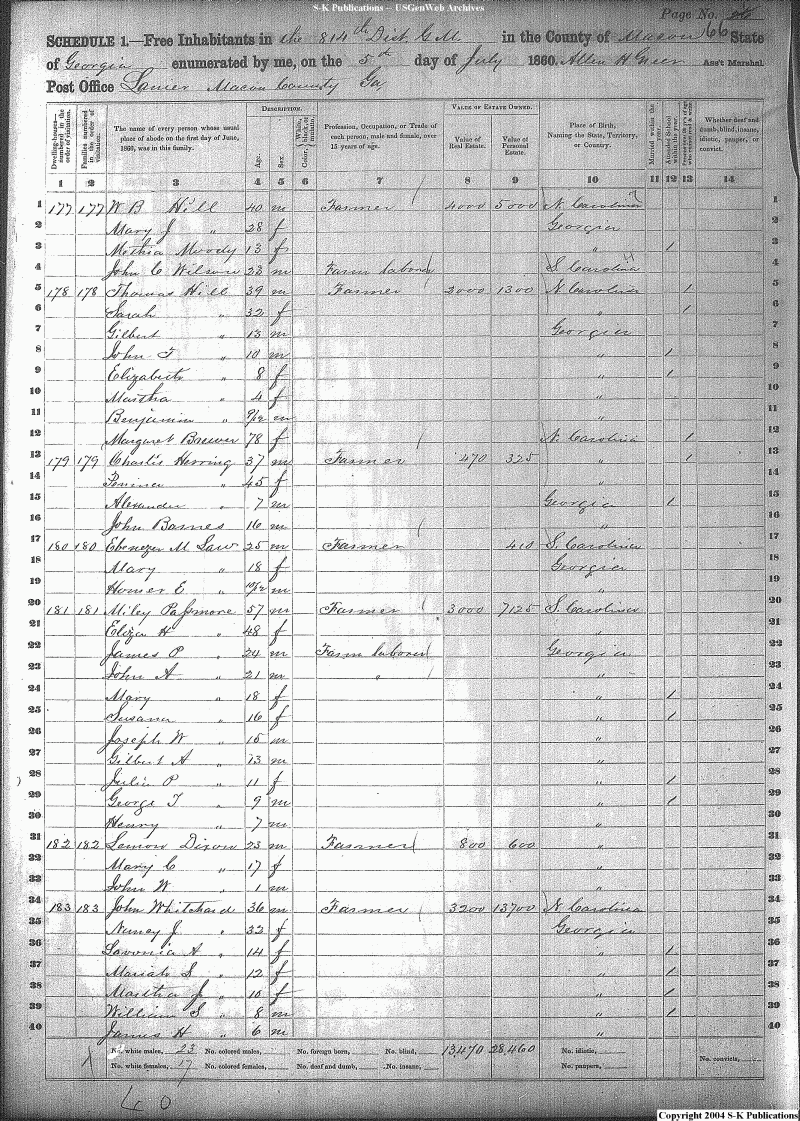 S-K Publications -- USGenWeb Archives
Page No. 66
SCHEDULE 1.—Free Inhabitants in the 814th Dist G. M. in the County of Macon State
of Georgia enumerated by me, on the 5th day of July 1860. Allen H Greer Ass't Marshal
Post Office Lanier Macon County Ga
Dwelling-houses—numbered in the order of visitation.
Families numbered in the order of visitation.
The name of every person whose usual place of abode on the first day of June, 1860, was in this family.
DESCRIPTION.
Age.
Sex.
Color, White, black, or mulatto.
Profession, Occupation, or Trade of each person, male and female, over 15 years of age.
VALUE OF ESTATE OWNED.
Value of Real Estate.
Value of Personal Estate.
Place of Birth, Naming the State, Territory, or Country.
Married within the year.
Attended School within the year.
Whether deaf and dumb, blind, insane, idiotic, pauper, or convict.
1 2 3 4 5 6 7 8 9 10 11 12 13 14
1 177 177 W B Hill 40 m Farmer 4000 5000 N Carolina 1
2 Mary J " 28 f Georgia 2
3 Moody 13 f " / 3
4 John C Wilson 23 m Farm laborer S Carolina 4
5 178 178 Thomas Hill 39 m Farmer 2000 1300 N Carolina / 5
6 Sarah " 32 f " / 6
7 Gilbert " 13 m Georgia 7
8 John F " 10 m " / 8
9 Elizabeth " 8 f " / 9
10 Martha " 4 f " 10
11 Benjamin " 9/12 m " 11
12 Margaret Brewer 78 f N. Carolina / 12
13 179 179 Charles Herring 37 m Farmer 470 325 " / 13
14 " 45 f " 14
15 Alexander " 7 m Georgia / 15
16 John Barnes 16 m " 16
17 180 180 Ebenezer M Law 25 m Farmer 410 S. Carolina 17
18 Mary " 18 f Georgia 18
19 Homer E " 10/12 m " 19
20 181 181 Miley Passmore 57 m Farmer 3000 7125 S. Carolina 20
21 Eliza H " 48 f " 21
22 James P " 24 m Farm laborer Georgia 22
23 John A " 21 m " " 23
24 Mary " 18 f " / 24
25 Susann " 16 f " / 25
26 Joseph W " 15 m " 26
27 Gilbert A " 13 m " 27
28 Julia P " 11 f " / 28
29 George T " 9 m " / 29
30 Henry " 7 m " 30
31 182 182 Lemon Dixon 23 m Farmer 800 600 " 31
32 Mary C " 17 f " 32
33 John W " 1 m " 33
34 183 183 John Whitchard 36 m Farmer 3200 13700 N Carolina 34
35 Nancy J " 32 f Georgia 35
36 Savonia A " 14 f " / 36
37 Mariah S " 12 f " / 37
38 Martha J " 10 f " / 38
39 William S " 8 m " / 39
40 James H " 6 m " 40
No. white males, 23 No. colored males, No. foreign born, No. blind, 13470 28,460 No. idiotic,
No. white females, 17 No. colored females, No. deaf and dumb, No. insane, No. paupers, No. convicts,
40
Copyright 2004 S-K Publications